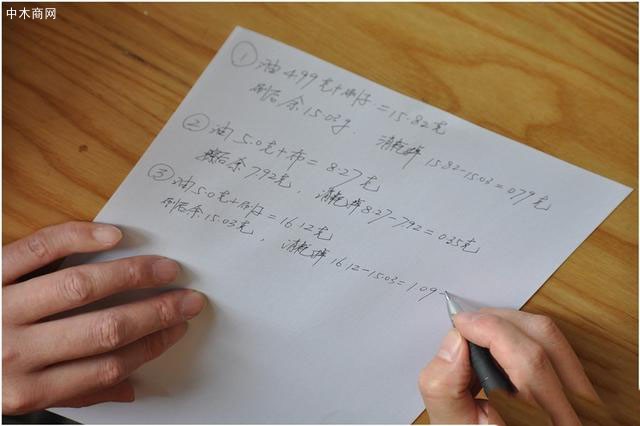 中木商网
① 油4.99克+刷子=15.82克
刷后余15.03g, 消耗 15.82-15.03=0.79克
② 油5.0克+布=8.27克
擦后余7.92克, 消耗 8.27-7.92=0.35克
③ 油5.0克+刷子=16.12克
刷后余15.03克, 消耗 16.12-15.03=1.09